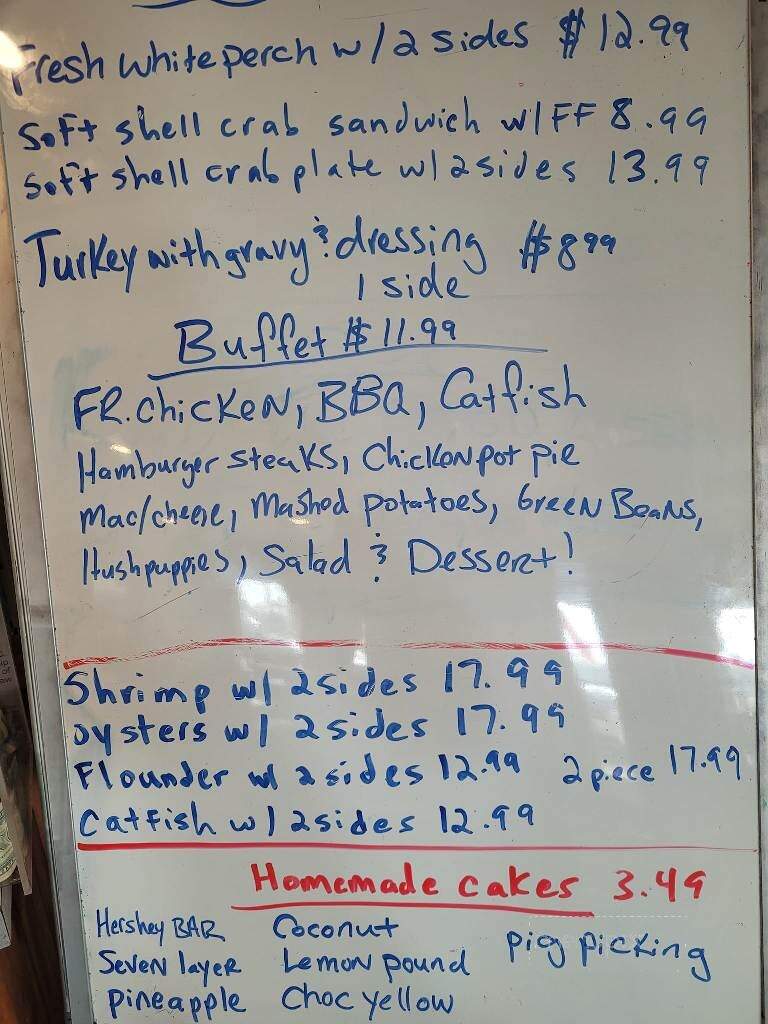 Fresh white perch w/ 2 sides $ 12.99
Soft shell crab sandwich w/ FF 8.99
Soft shell crab plate w/ 2 sides 13.99
Turkey with gravy & dressing $8 99
1 side
Buffet $ 11.99
FR. Chicken, BBQ, Catfish
Hamburger steaks, Chicken pot pie
Mac/cheese, Mashed potatoes, Green Beans,
Hushpuppies, Salad & Dessert!
Shrimp w/ 2 sides 17.99
oysters w/ 2 sides 17.99
Flounder w/ 2 sides 12.99 2 piece 17.99
Catfish w/ 2 sides 12.99
Homemade cakes 3.49
Hershey BAR Coconut pig picking
Seven layer Lemon pound
pineapple Choc yellow